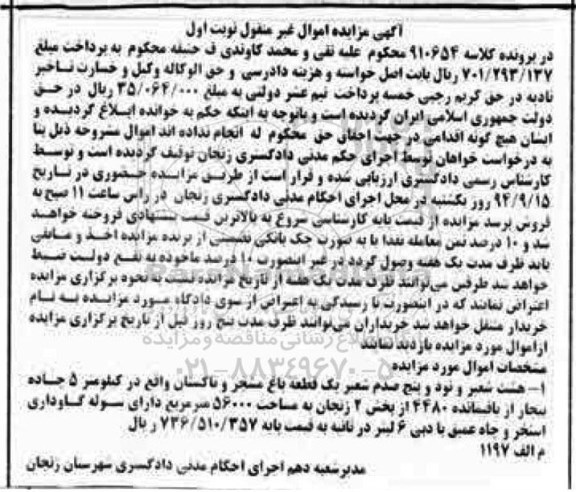 آگهی مزایده اموال غیر منقول نوبت اول
در پرونده کلاسه ۹۱۰۶۵۴ محکوم علیه نقی و محمد کاوندی ف حنیفه محکوم به پرداخت مبلغ
۷۰۱/۲۹۳/۱۳۷ ریال بابت اصل خواسته و هزینه دادرسی و حق الوکاله وکیل و خسارت تاخیر
تادیه در حق کریم رجبی خمسه پرداخت نیم عشر دولتی به مبلغ ۳۵/۰۶۴/۰۰۰ ریال در حق
دولت جمهوری اسلامی ایران گردیده است و باتوجه به اینکه حکم به خوانده ابلاغ گردیده و
ایشان هیچ گونه اقدامی در جهت احقاق حق محکوم له انجام نداده اند اموال مشروحه ذیل بنا
به درخواست خواهان توسط اجرای حکم مدنی دادگستری زنجان توقیف گردیده است و توسط
کارشناس رسمی دادگستری ارزیابی شده و قرار است از طریق مزایده حضوری در تاریخ
۹۴/۹/۱۵ روز یکشنبه در محل اجرای احکام مدنی دادگستری زنجان در راس ساعت ۱۱ صبح به
فروش برسد مزایده از قیمت پایه کارشناسی شروع به بالاترین قیمت پیشنهادی فروخته خواهد
شد و ۱۰ درصد ثمن معامله نقدا یا به صورت چک بانکی تضمینی از برنده مزایده اخذ و مابقی
باید ظرف مدت یک هفته وصول گردد در غیر اینصورت ۱۰ درصد ماخوذه به نفع دولت ضبط
خواهد شد طرفین می‌توانند ظرف مدت یک هفته از تاریخ مزایده نسبت به نحوه برگزاری مزایده
اعتراض نمایند که در اینصورت با رسیدگی به اعتراض از سوی دادگاه مورد مزایده به نام
خریدار منتقل خواهد شد خریداران می‌توانند ظرف مدت پنج روز قبل از تاریخ برگزاری مزایده
ازاموال مورد مزایده بازدید نمایند
مشخصات اموال مورد مزایده
۱- هشت شعیر و نود و پنج صدم شعیر یک قطعه باغ مشجر و تاکستان واقع در کیلومتر ۵ جاده
بیجار از باقیمانده ۴۴۸۰ از بخش ۲ زنجان به مساحت ۵۶۰۰۰ مترمربع دارای سوله گاوداری
استخر و چاه عمیق با دبی ۶ لیتر در ثانیه به قیمت پایه ۷۳۶/۵۱۰/۳۵۷ ریال
م الف ۱۱۹۷
مدیرشعبه دهم اجرای احکام مدنی دادگستری شهرستان زنجان
ParsNamadData
۰۲۱-۸۸۳۴۹۶۷۰-۵